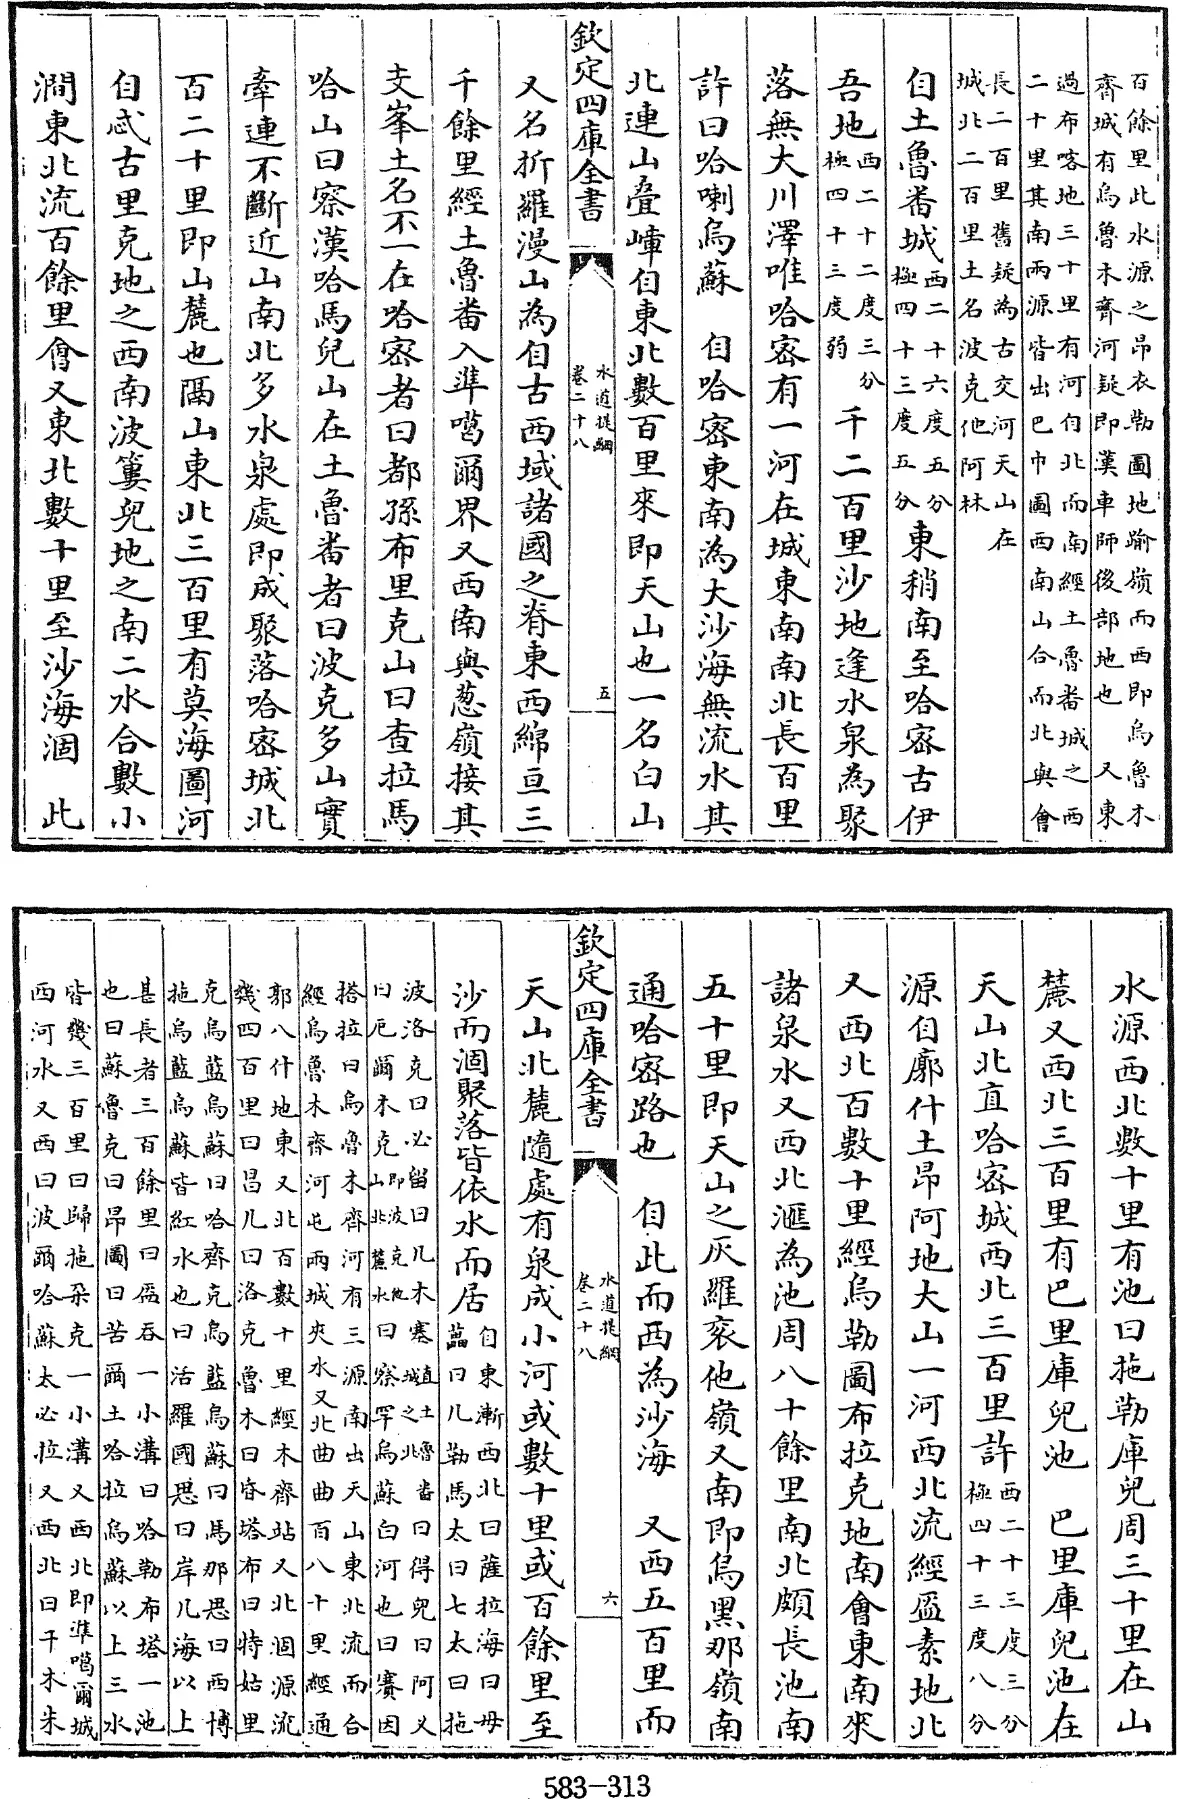 百餘里此水源之昂衣勒圖地踰嶺而西即烏魯木
齊城有烏魯木齊河疑即漢車師後部地也　又東
過布喀地三十里有河自北而南經土魯番城之西
二十里其南兩源皆出巴巾圖西南山合而北與會
長二百里舊疑為古交河天山在
城北二百里土名波克他阿林
自土魯番城西二十六度五分極四十三度五分東稍南至哈密古伊
吾地西二十二度三分極四十三度弱　千二百里沙地逢水泉為聚
落無大川澤唯哈密有一河在城東南南北長百里
許曰哈喇烏蘇　自哈密東南為大沙海無流水其
北連山疊嶂自東北數百里來即天山也一名白山
欽定四庫全書　水道提綱　卷二十八　五
又名折羅漫山為自古西域諸國之脊東西綿亘三
千餘里經土魯番入準噶爾界又西南與蔥嶺接其
支峯土名不一在哈密者曰都孫布里克山曰查拉馬
哈山曰察漢哈馬兒山在土魯番者曰波克多山實
牽連不斷近山南北多水泉處即成聚落哈密城北
百二十里即山麓也隔山東北三百里有莫海圖河
自忒古里克地之西南波簍兒地之南二水合數小
澗東北流百餘里會又東北數十里至沙海涸　此
水源西北數十里有池曰拖勒庫兒周三十里在山
麓又西北三百里有巴里庫兒池　巴里庫兒池在
天山北直哈密城西北三百里許西二十三度三分極四十三度八分
源自廓什土昂阿地大山一河西北流經盈素地北
又西北百數十里經烏勒圖布拉克地南會東南來
諸泉水又西北滙為池周八十餘里南北頗長池南
五十里即天山之灰羅袞他嶺又南即烏黑那嶺南
通哈密路也　自此而西為沙海　又西五百里而
欽定四庫全書　水道提綱　卷二十八　六
天山北麓隨處有泉成小河或數十里或百餘里至
沙而涸聚落皆依水而居自東漸西北曰薩拉海曰毋
葍曰几勒馬太曰七太曰拖
波洛克曰必留曰几木塞直土魯番城之北曰得兒曰阿乂
曰厄爾木克山即波克他北麓水曰察罕烏蘇白河也曰賽因
搭拉曰烏魯木齊河有三源南出天山東北流而合
經烏魯木齊河屯兩城夾水又北曲曲百八十里經通
郭八什地東又北百數十里經木齊站又北涸源流
幾四百里曰昌几曰洛克魯木曰昏塔布曰特姑里
克烏藍烏蘇曰哈齊克烏藍烏蘇曰馬那思曰西博
拖烏藍烏蘇皆紅水也曰活羅國思曰岸几海以上
甚長者三百餘里曰偪吞一小溝曰哈勒布塔一池
也曰蘇魯克曰昂圖曰苦爾土哈拉烏蘇以上三水
皆幾三百里曰歸拖朶克一小溝又西北即準噶爾城
西河水又西曰波爾哈蘇太必拉又西北曰干木朱
583-313